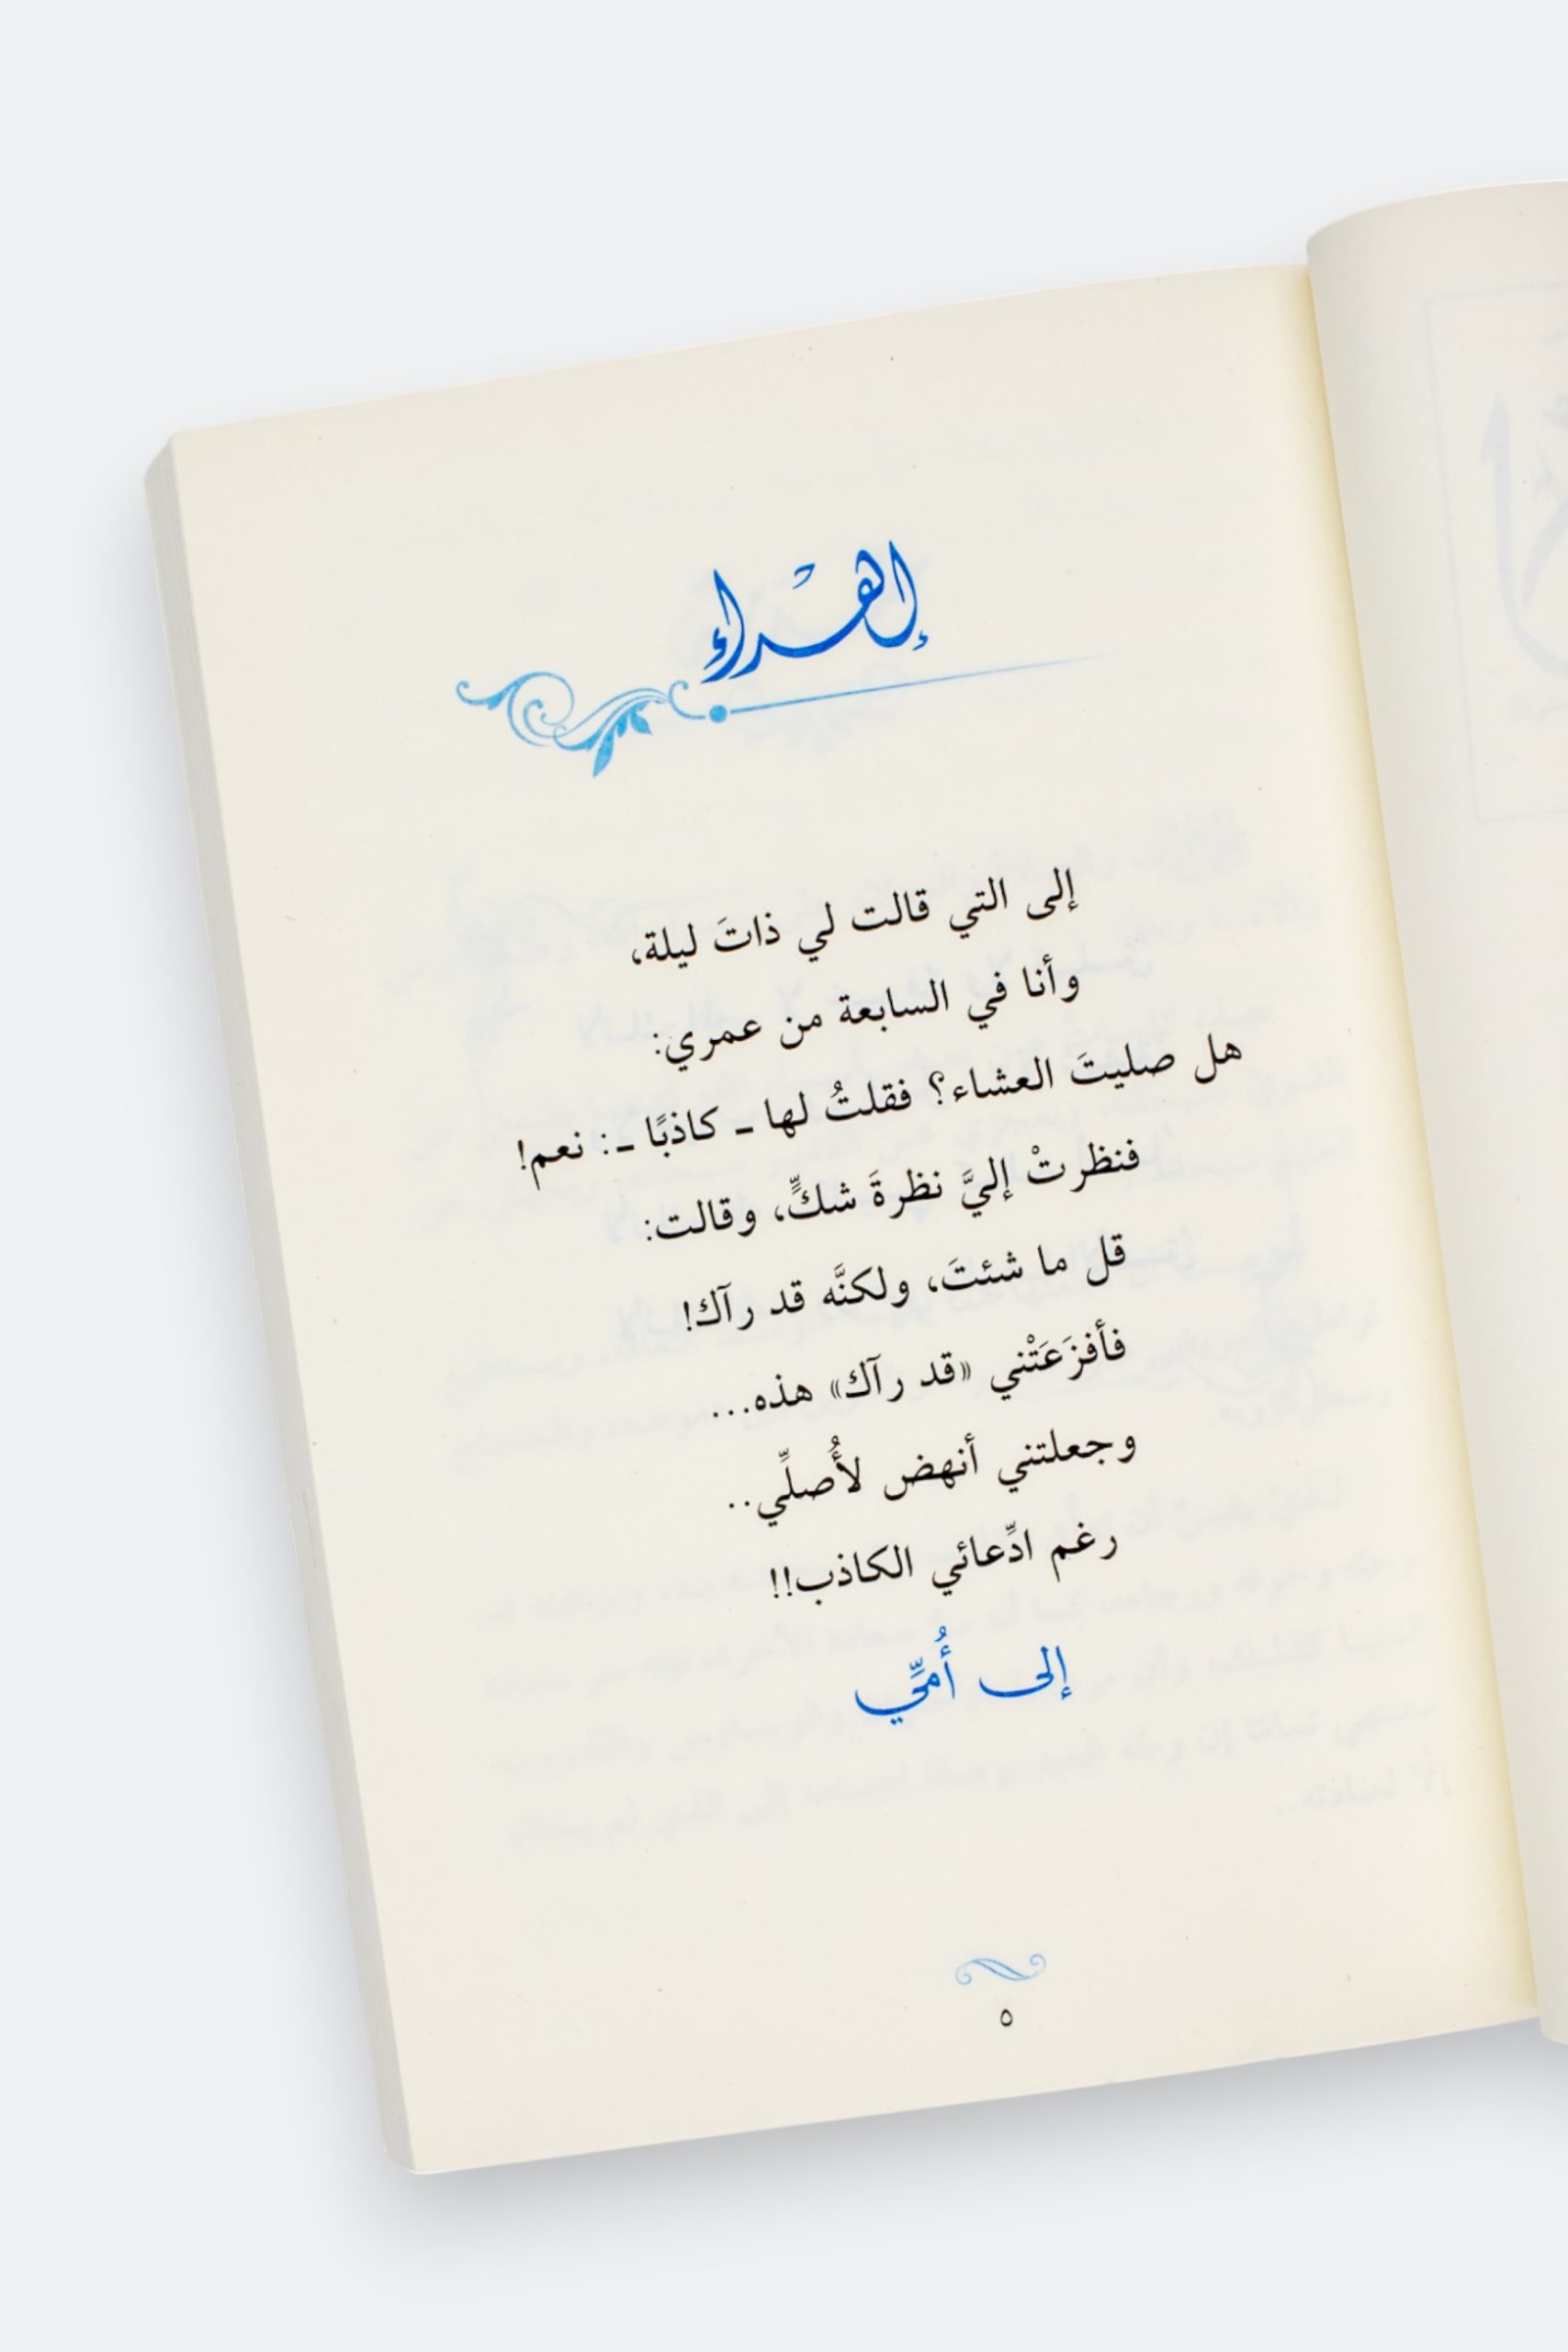 إهْداء
إلى التي قالت لي ذاتَ ليلة،
وأنا في السابعة من عمري:
هل صليتَ العشاء؟ فقلتُ لها ـ كاذبًا ـ: نعم!
فنظرتْ إليَّ نظرةَ شكٍّ، وقالت:
قل ما شئتَ، ولكنَّه قد رآك!
فأفزَعَتْني «قد رآك» هذه...
وجعلتني أنهض لأُصلِّي..
رغم ادِّعائي الكاذب!!
إلى أُمِّي
٥